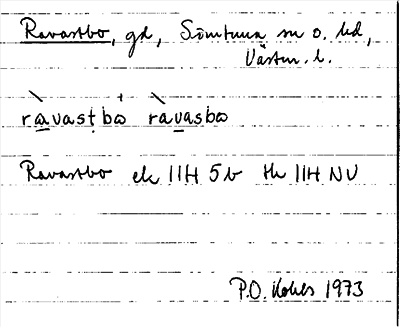 Ravastbo, gd, Simtuna sn o. hd,
Västm. l.
ràvastbω ràvasbω
Ravastbo ek 11H 5b tk 11H NV
P.O. 1973